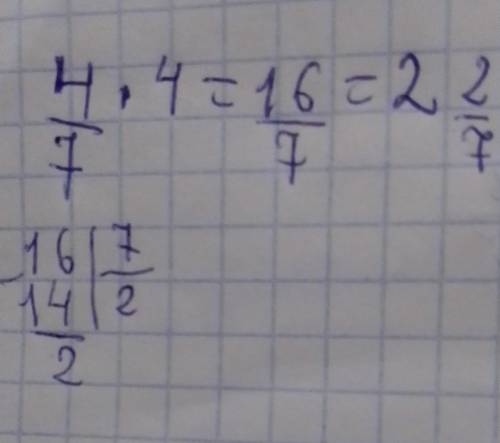 4/7 · 4 = 16/7 = 2 2/7
16 | 7
- 14 | 2
2